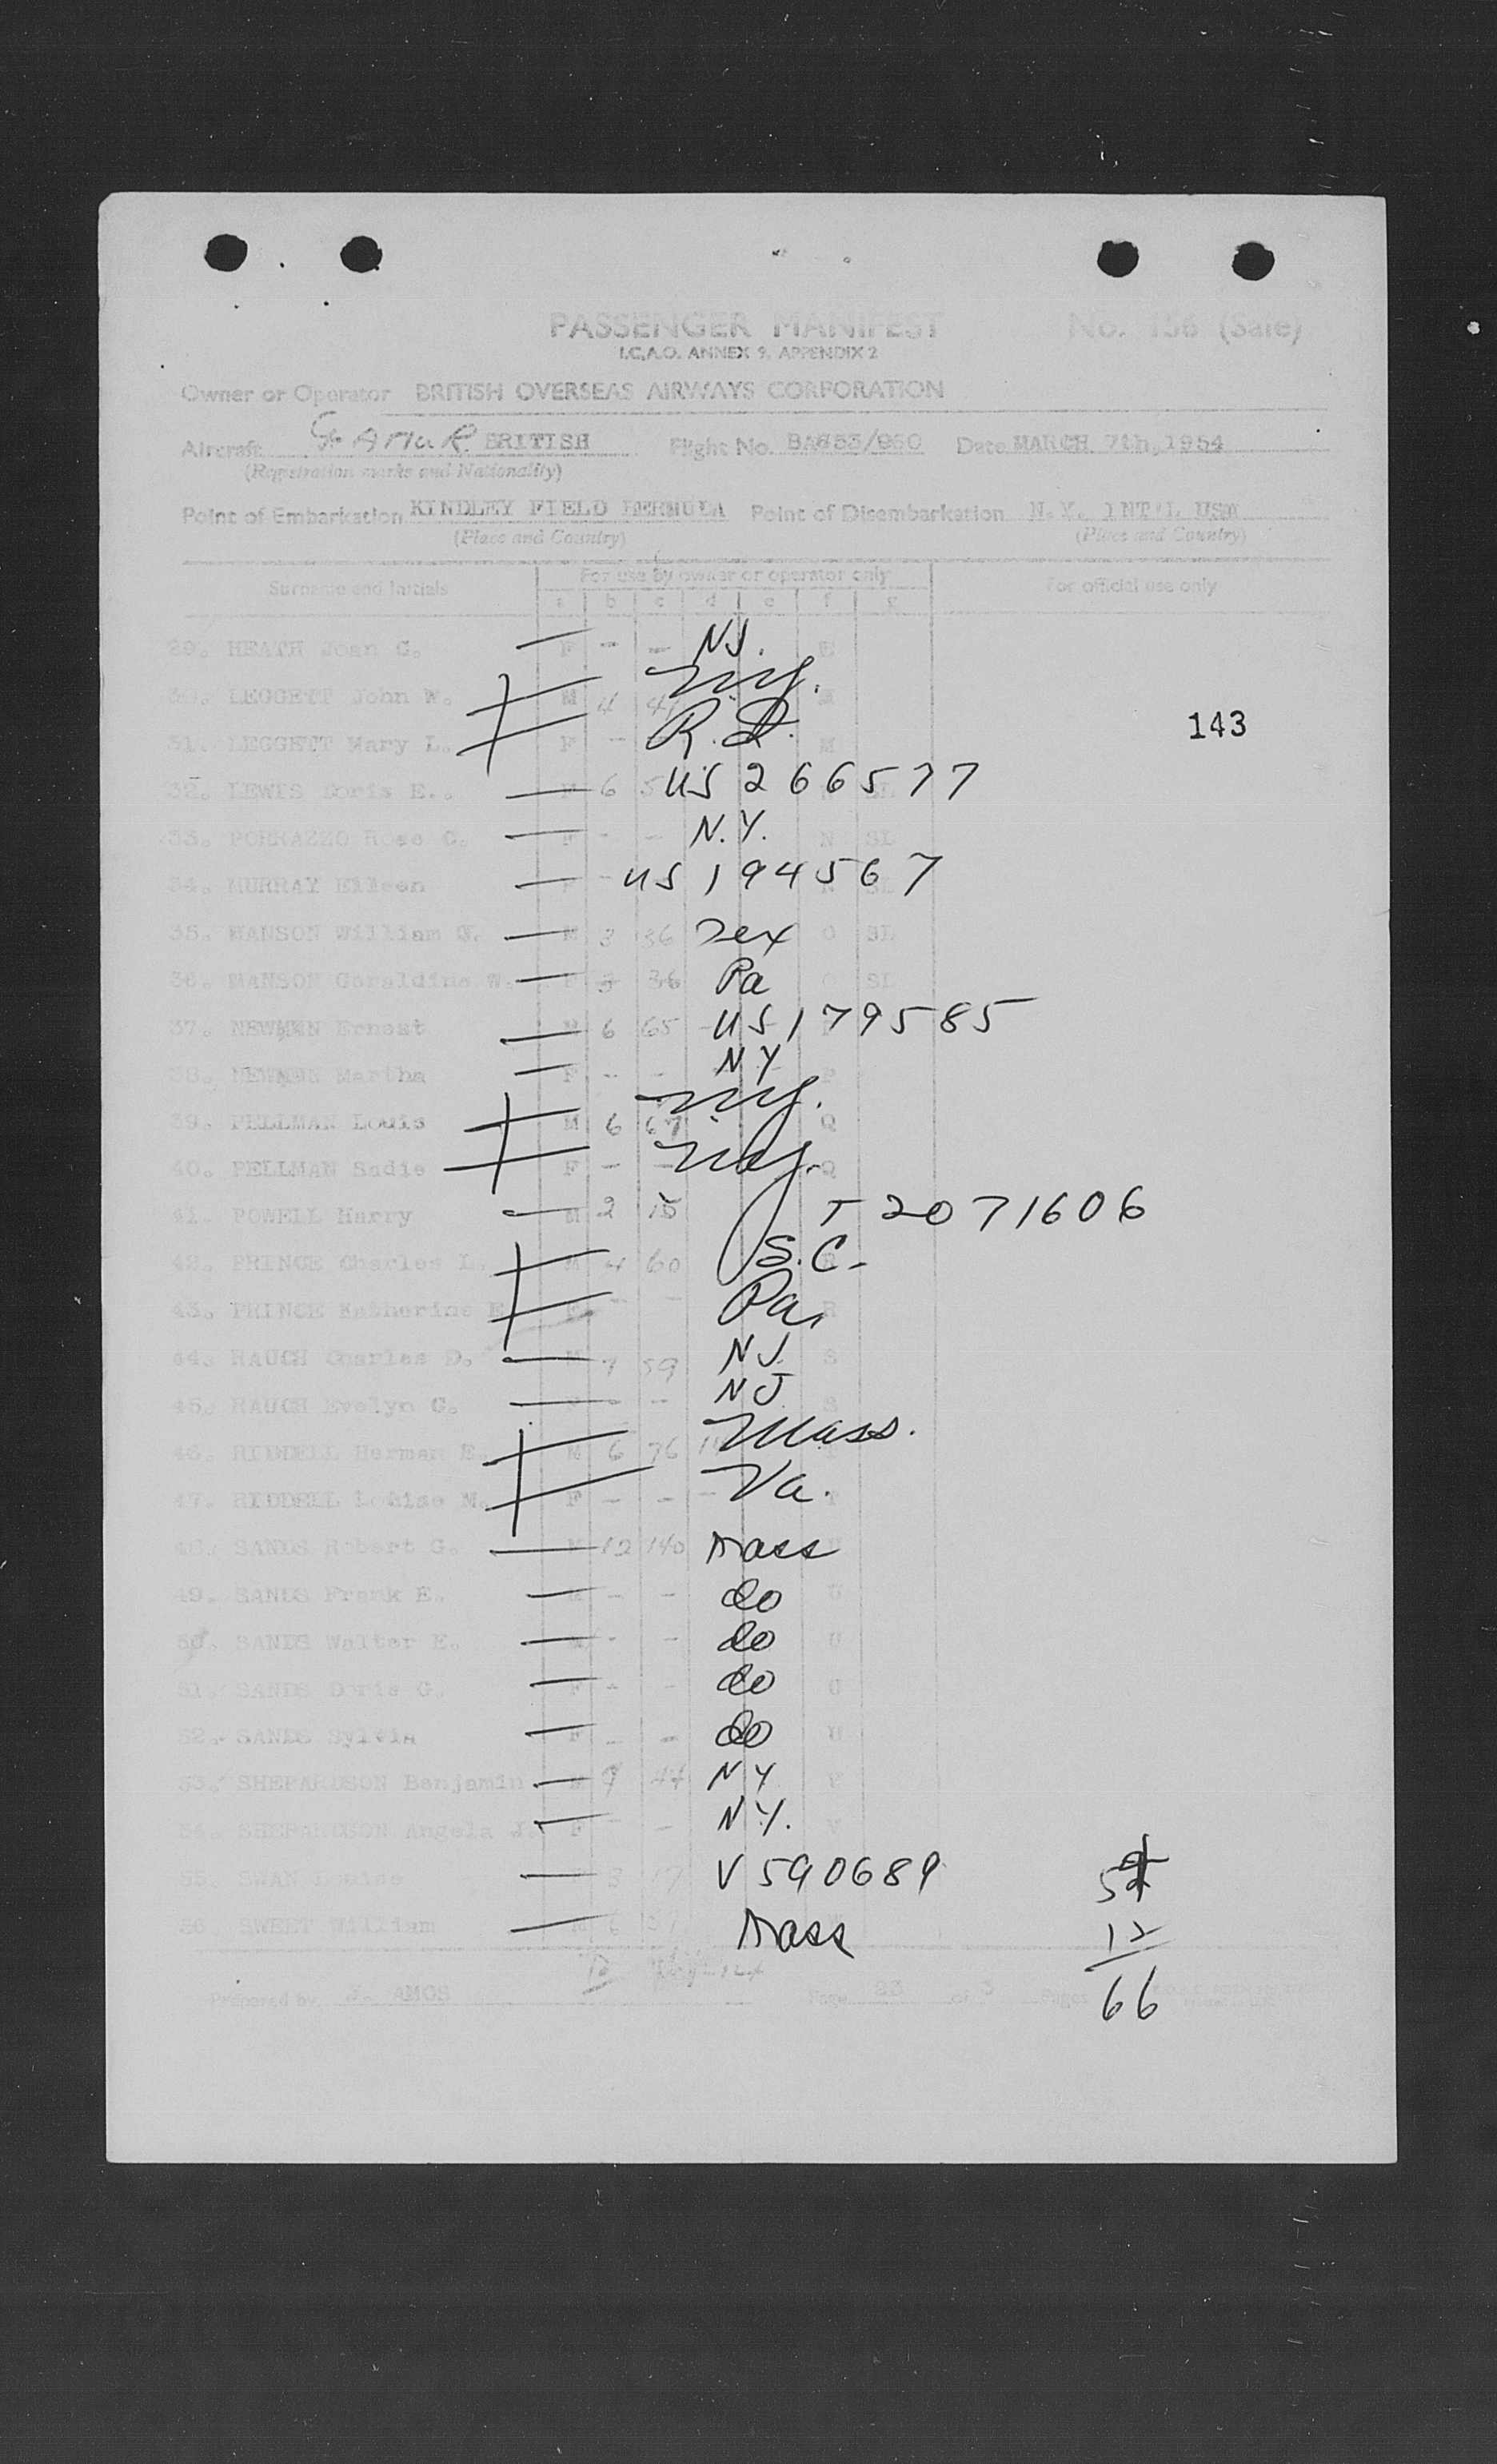 PASSENGER MANIFEST No. 156 (Sale)
I.C.A.O. ANNEX 9, APPENDIX 2
Owner or Operator BRITISH OVERSEAS AIRWAYS CORPORATION
Aircraft G-AMUR BRITISH Flight No. BA653/950 Date MARCH 7th, 1954
(Registration marks and Nationality)
Point of Embarkation KINDLEY FIELD BERMUDA Point of Disembarkation N.Y. INT'L USA
(Place and Country) (Place and Country)
Surname and Initials For use by owner or operator only For official use only
a b c d e f g
29. HEATH Joan G. F - - NJ.
30. LEGGETT John W. M 4 N.Y.
143
31. LEGGETT Mary L. F - R.I. M
32. LEWIS Doris E. 6 US 266577
33. PORRAZZO Rose C. F - - N.Y. N SL
34. MURRAY Eileen US 194567
35. MANSON William G. M 3 36 Tex O SL
36. MANSON Geraldine W. F 3 36 Pa O SL
37. NEWMEN Ernest M 6 65 US 179585
38. NEWMEN Martha F - - NY P
39. PELLMAN Louis M 6 67 N.Y. Q
40. PELLMAN Sadie F - N.Y. Q
41. POWELL Harry M 2 15 T 2071606
42. PRINCE Charles L. M 4 60 S.C.
43. PRINCE Katherine E. F - - Pa. R
44. RAUCH Charles D. M 7 59 NJ. S
45. RAUCH Evelyn G. F - - NJ S
46. RIDDELL Herman E. M 6 76 Mass. T
47. RIDDELL Louise M. F - - Va. T
48. SANDS Robert G. M 12 140 Mass U
49. SANDS Frank E. M - - do U
50. SANDS Walter E. M - - do U
51. SANDS Doris G. F - - do U
52. SANDS Sylvia F - - do U
53. SHEPARDSON Benjamin M 9 44 NY V
54. SHEPARDSON Angela J. F - - N.Y. V
55. SWAN 3 17 V 590689
56 SWEET William M 6 Mass
12
66
Prepared by J. AMOS Page of 3 Pages